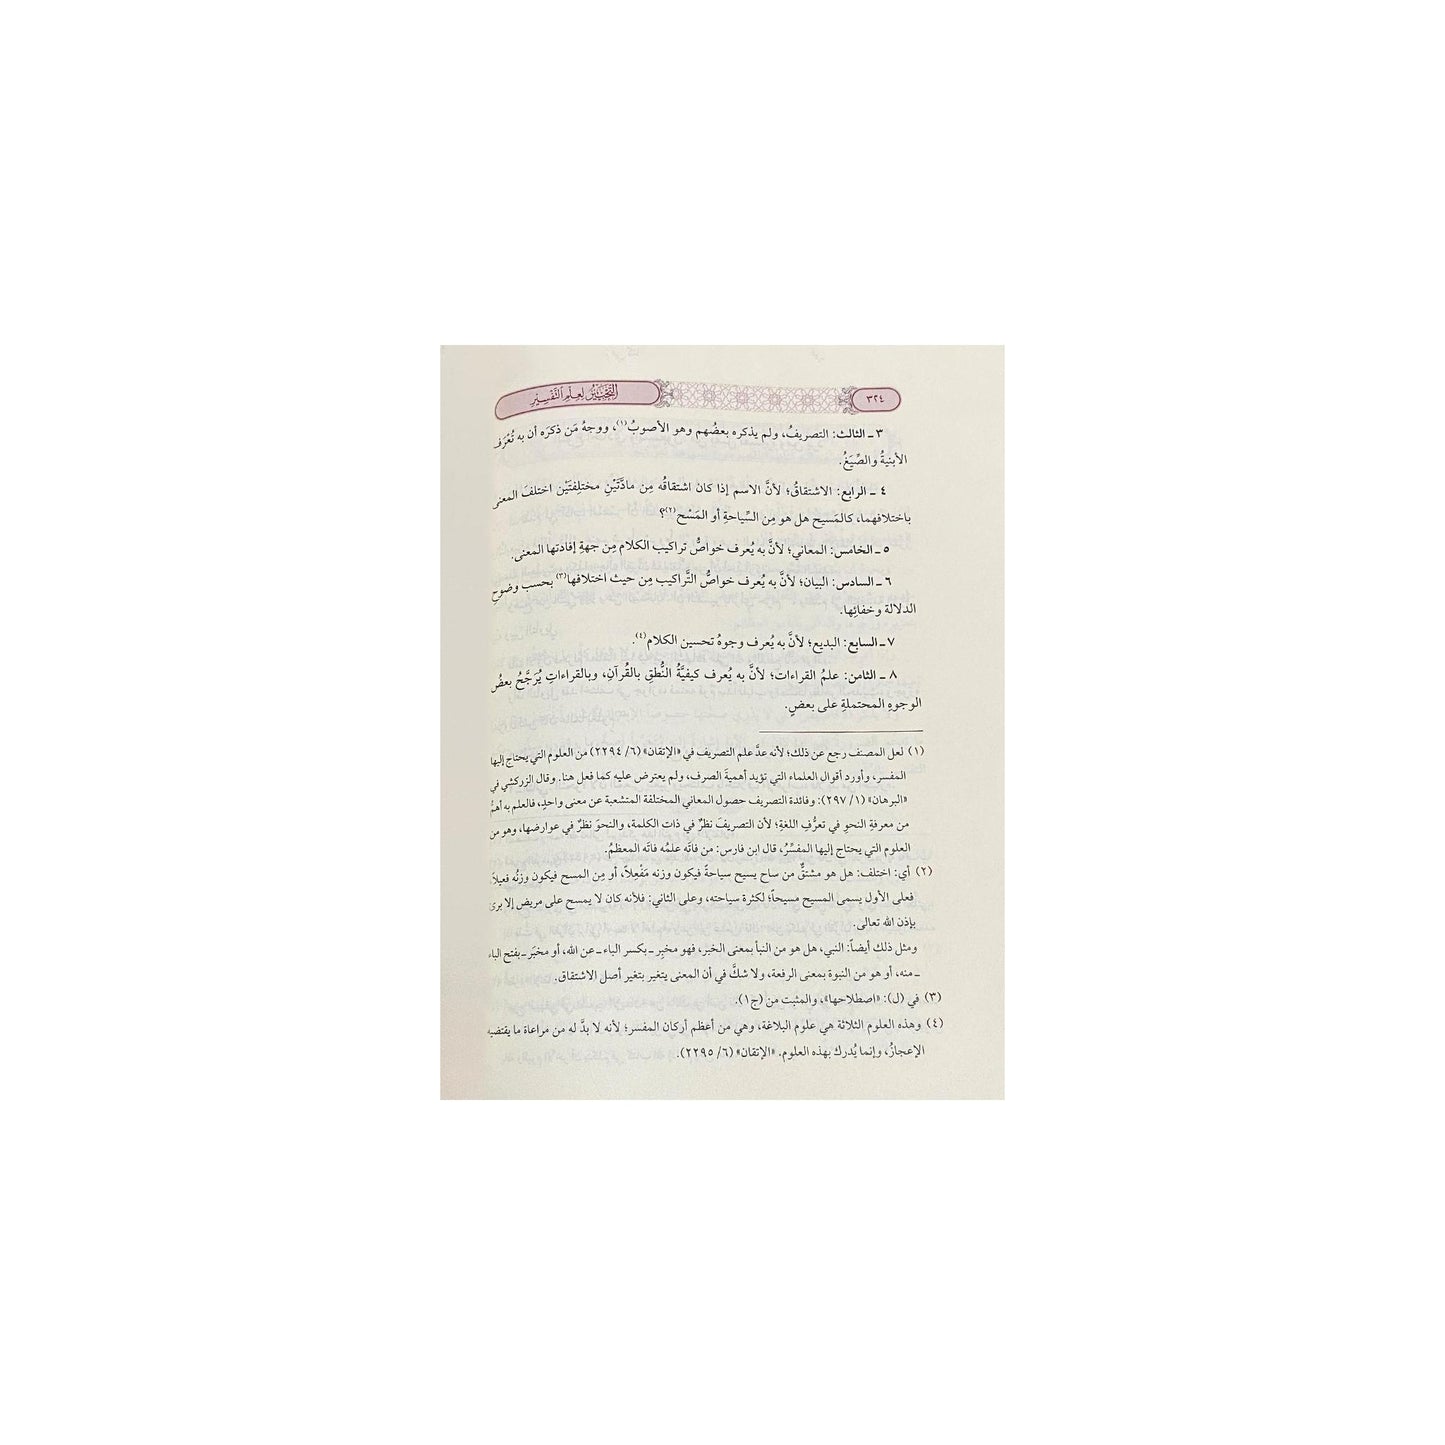 ٣٢٤
التحبير لعلم التفسير
٣ ـ الثالث: التصريفُ، ولم يذكره بعضُهم وهو الأصوبُ(١)، ووجهُ مَن ذكرَه أن به تُعْرَف
الأبنيةُ والصِّيَغُ.
٤ ـ الرابع: الاشتقاقُ؛ لأنَّ الاسم إذا كان اشتقاقُه مِن مادَّتَيْنِ مختلِفتَيْن اختلفَ المعنى
باختلافهما، كالمَسيح هل هو مِن السِّياحةِ أو المَسْح(٢)؟
٥ ـ الخامس: المعاني؛ لأنَّ به يُعرف خواصُّ تراكيب الكلام مِن جهةِ إفادتها المعنى.
٦ ـ السادس: البيان؛ لأنَّ به يُعرف خواصُّ التَّراكيب مِن حيث اختلافها(٣) بحسب وضوحِ
الدلالة وخفائِها.
٧ ـ السابع: البديع؛ لأنَّ به يُعرف وجوهُ تحسين الكلام(٤).
٨ ـ الثامن: علمُ القراءات؛ لأنَّ به يُعرف كيفيَّةُ النُّطقِ بالقُرآنِ، وبالقراءاتِ يُرَجَّحُ بعضُ
الوجوهِ المحتملةِ على بعضٍ.
(١) لعل المصنف رجع عن ذلك؛ لأنه عدَّ علم التصريف في «الإتقان» (٦/ ٢٢٩٤) من العلوم التي يحتاج إليها
المفسر، وأورد أقوال العلماء التي تؤيد أهميةَ الصرف، ولم يعترض عليه كما فعل هنا. وقال الزركشي في
«البرهان» (١/ ٢٩٧): وفائدة التصريف حصول المعاني المختلفة المتشعبة عن معنى واحدٍ، فالعلم به أهمُّ
من معرفةِ النحوِ في تعرُّفِ اللغةِ؛ لأن التصريفَ نظرٌ في ذات الكلمة، والنحوَ نظرٌ في عوارضها، وهو من
العلوم التي يحتاج إليها المفسِّرُ، قال ابن فارس: من فاتَه علمُه فاتَه المعظمُ.
(٢) أي: اختلف: هل هو مشتقٌّ من ساح يسيح سياحةً فيكون وزنه مَفْعِلاً، أو مِن المسح فيكون وزنُه فعيلاً
فعلى الأول يسمى المسيح مسيحاً؛ لكثرة سياحته، وعلى الثاني: فلأنه كان لا يمسح على مريض إلا برئ
بإذن الله تعالى.
ومثل ذلك أيضاً: النبي، هل هو من النبأ بمعنى الخبر، فهو مخبِر ـ بكسر الباء ـ عن الله، أو مخبَر ـ بفتح الباء
ـ منه، أو هو من النبوة بمعنى الرفعة، ولا شكَّ في أن المعنى يتغير بتغير أصل الاشتقاق.
(٣) في (ل): «اصطلاحها»، والمثبت من (ج١).
(٤) وهذه العلوم الثلاثة هي علوم البلاغة، وهي من أعظم أركان المفسر؛ لأنه لا بدَّ له من مراعاة ما يقتضيه
الإعجازُ، وإنما يُدرك بهذه العلوم. «الإتقان» (٦/ ٢٢٩٥).